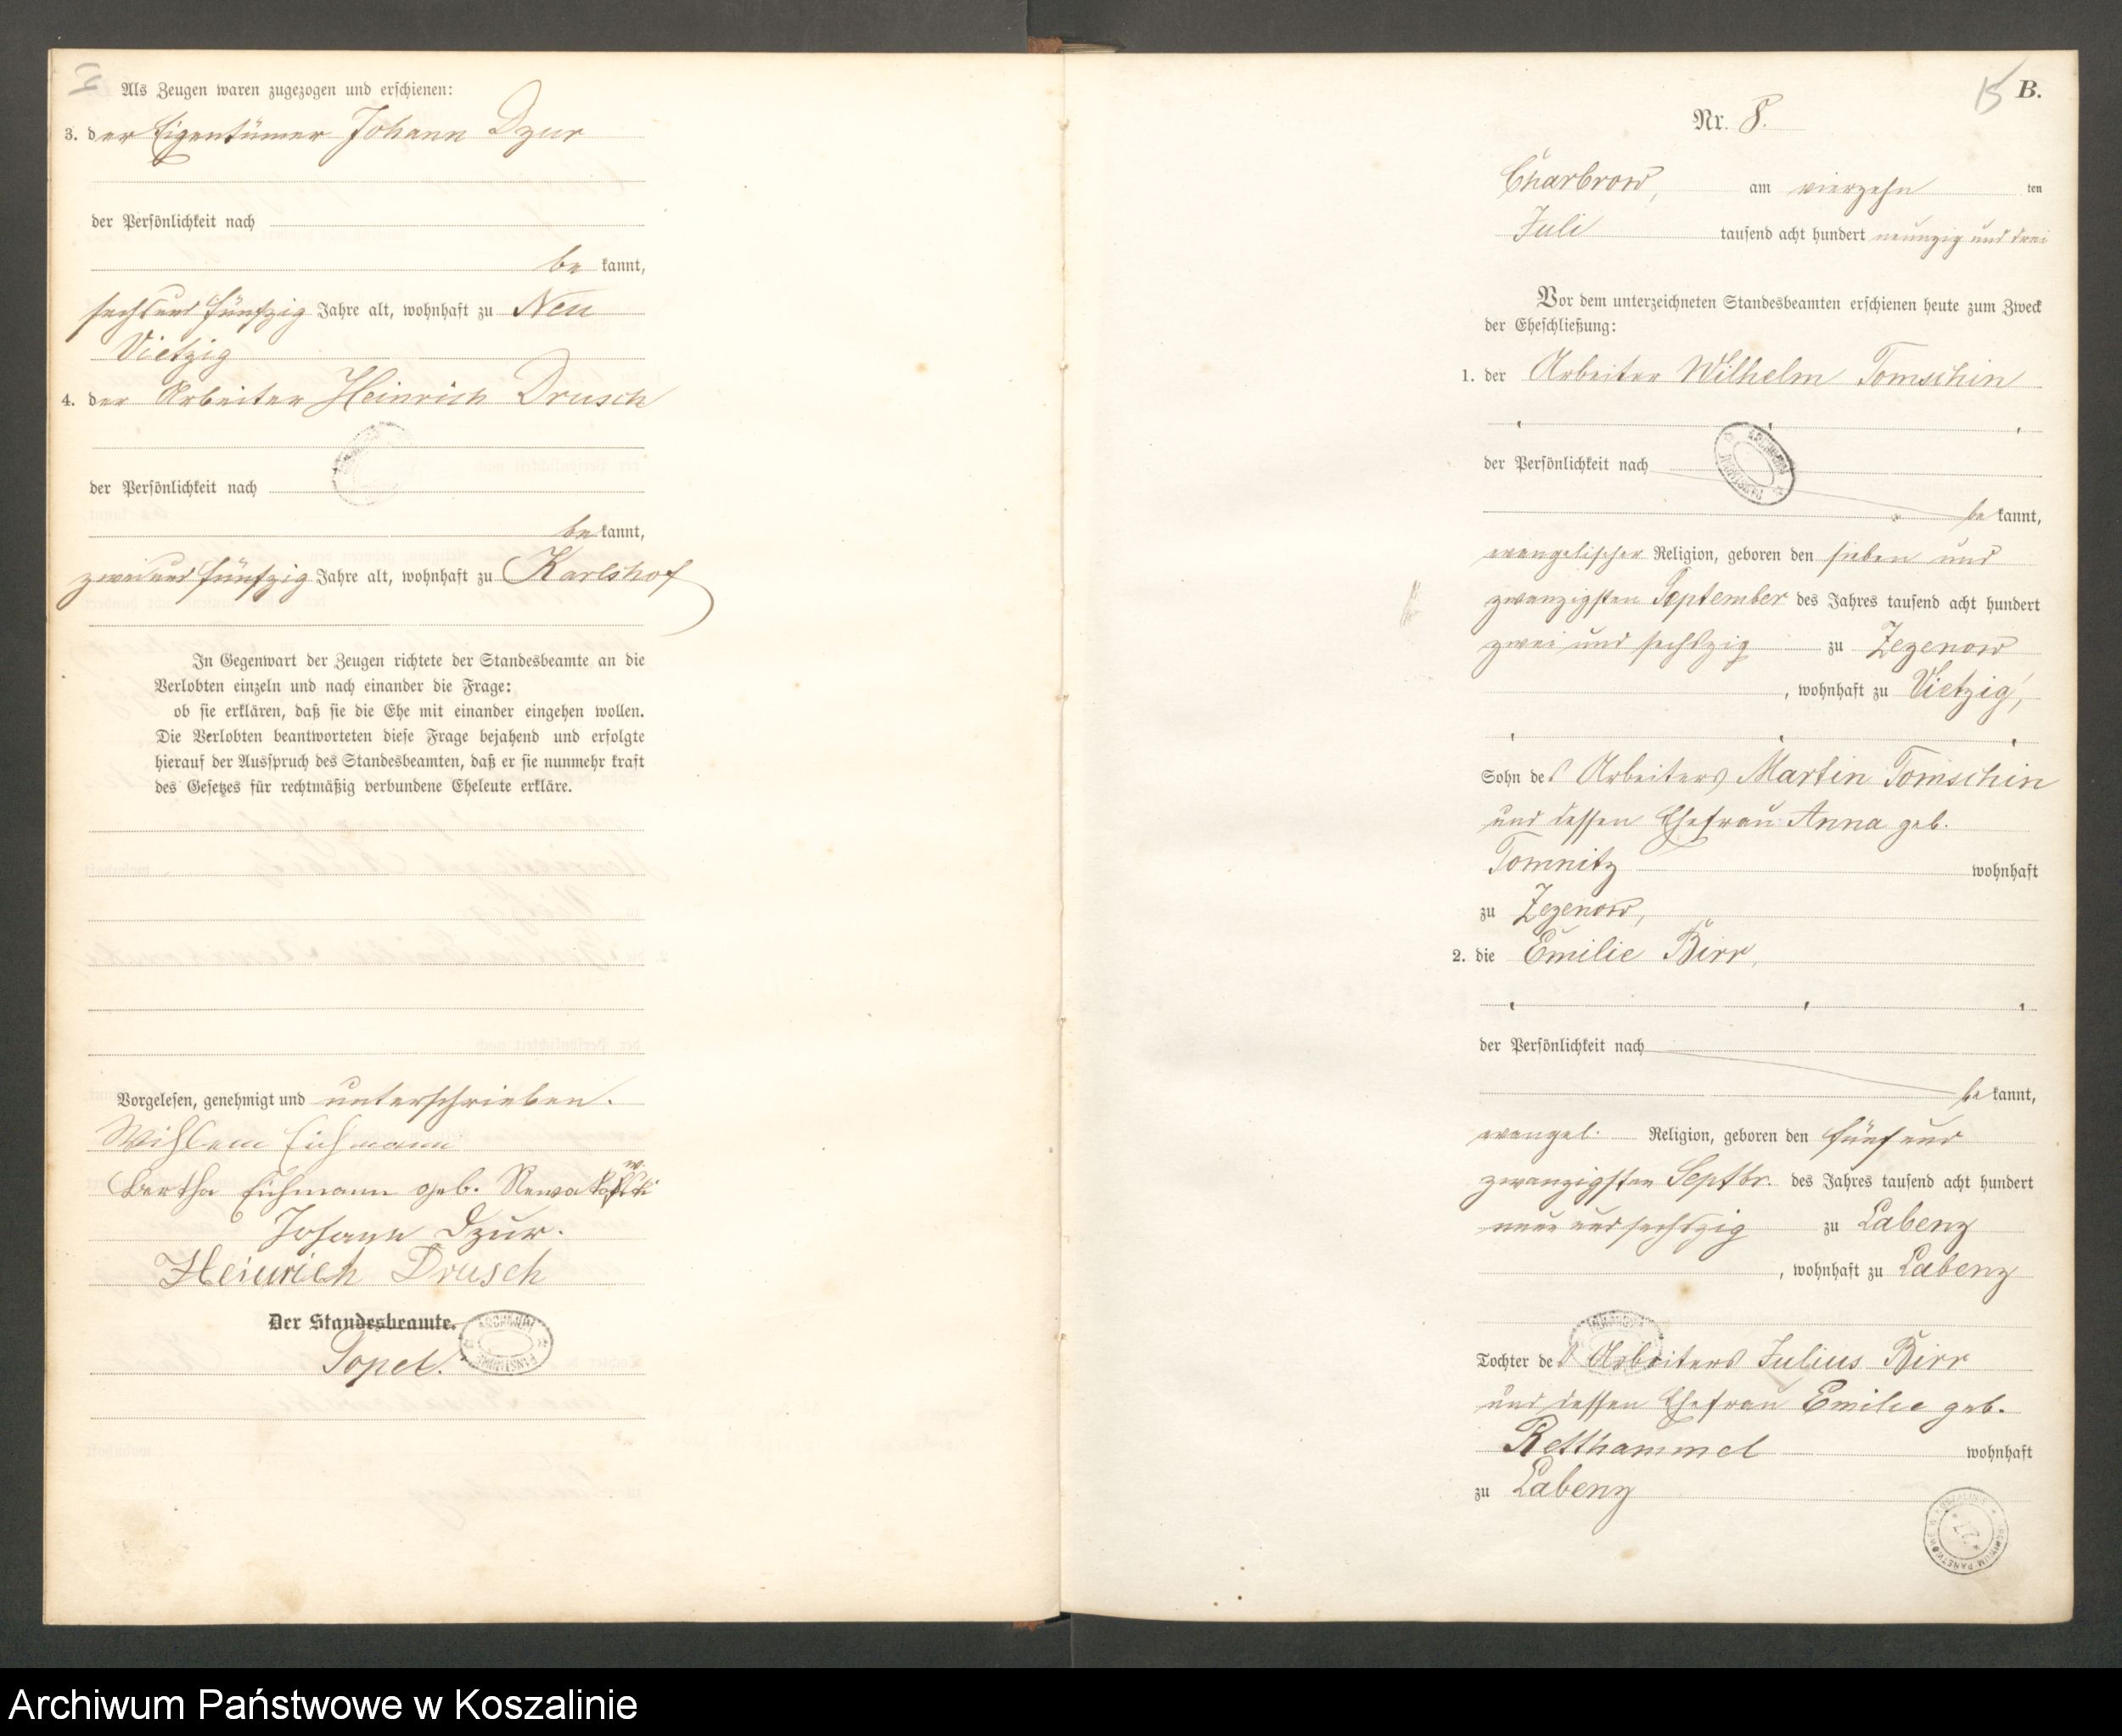 Als Zeugen waren zugezogen und erschienen:
3. der Eigentümer Johann Dzur
der Persönlichkeit nach
be kannt,
sechs und fünfzig Jahre alt, wohnhaft zu Neu
Vietzig
4. der Arbeiter Heinrich Drusch
der Persönlichkeit nach
be kannt,
zwei und fünfzig Jahre alt, wohnhaft zu Karlshof
In Gegenwart der Zeugen richtete der Standesbeamte an die
Verlobten einzeln und nach einander die Frage:
ob sie erklären, daß sie die Ehe mit einander eingehen wollen.
Die Verlobten beantworteten diese Frage bejahend und erfolgte
hierauf der Ausspruch des Standesbeamten, daß er sie nunmehr kraft
des Gesetzes für rechtmäßig verbundene Eheleute erkläre.
Vorgelesen, genehmigt und unterschrieben.
Wihlem Eichmann
Bertha Eichmann geb.
Johann Dzur.
Heinrich Drusch
Der Standesbeamte.
Popel.
15 B.
Nr. 8.
Charbrow, am vierzehn ten
Juli tausend acht hundert neunzig und drei
Vor dem unterzeichneten Standesbeamten erschienen heute zum Zweck
der Eheschließung:
1. der Arbeiter Wilhelm Tomschin
der Persönlichkeit nach
be kannt,
evangelischer Religion, geboren den sieben und
zwanzigsten September des Jahres tausend acht hundert
zwei und sechszig zu Zezenow
, wohnhaft zu Vietzig,
Sohn des Arbeiters Martin Tomschin
und dessen Ehefrau Anna geb.
Tomnitz wohnhaft
zu Zezenow,
2. die Emilie Birr,
der Persönlichkeit nach
be kannt,
evangel. Religion, geboren den fünf und
zwanzigsten Septbr. des Jahres tausend acht hundert
neun und sechszig zu Labenz
, wohnhaft zu Labenz
Tochter des Arbeiters Julius Birr
und dessen Ehefrau Emilie geb.
Retthammel wohnhaft
zu Labenz
ARCHIWUM PAŃSTWOWE W KOSZALINIE
Archiwum Państwowe w Koszalinie